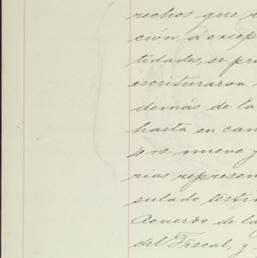 rechos que
ción, á excep
tidades, se pro
escrituraron
demás de la
hasta en can
nueve y
rias represen
sulado testim
Acuerdo de la
del Fiscal, y